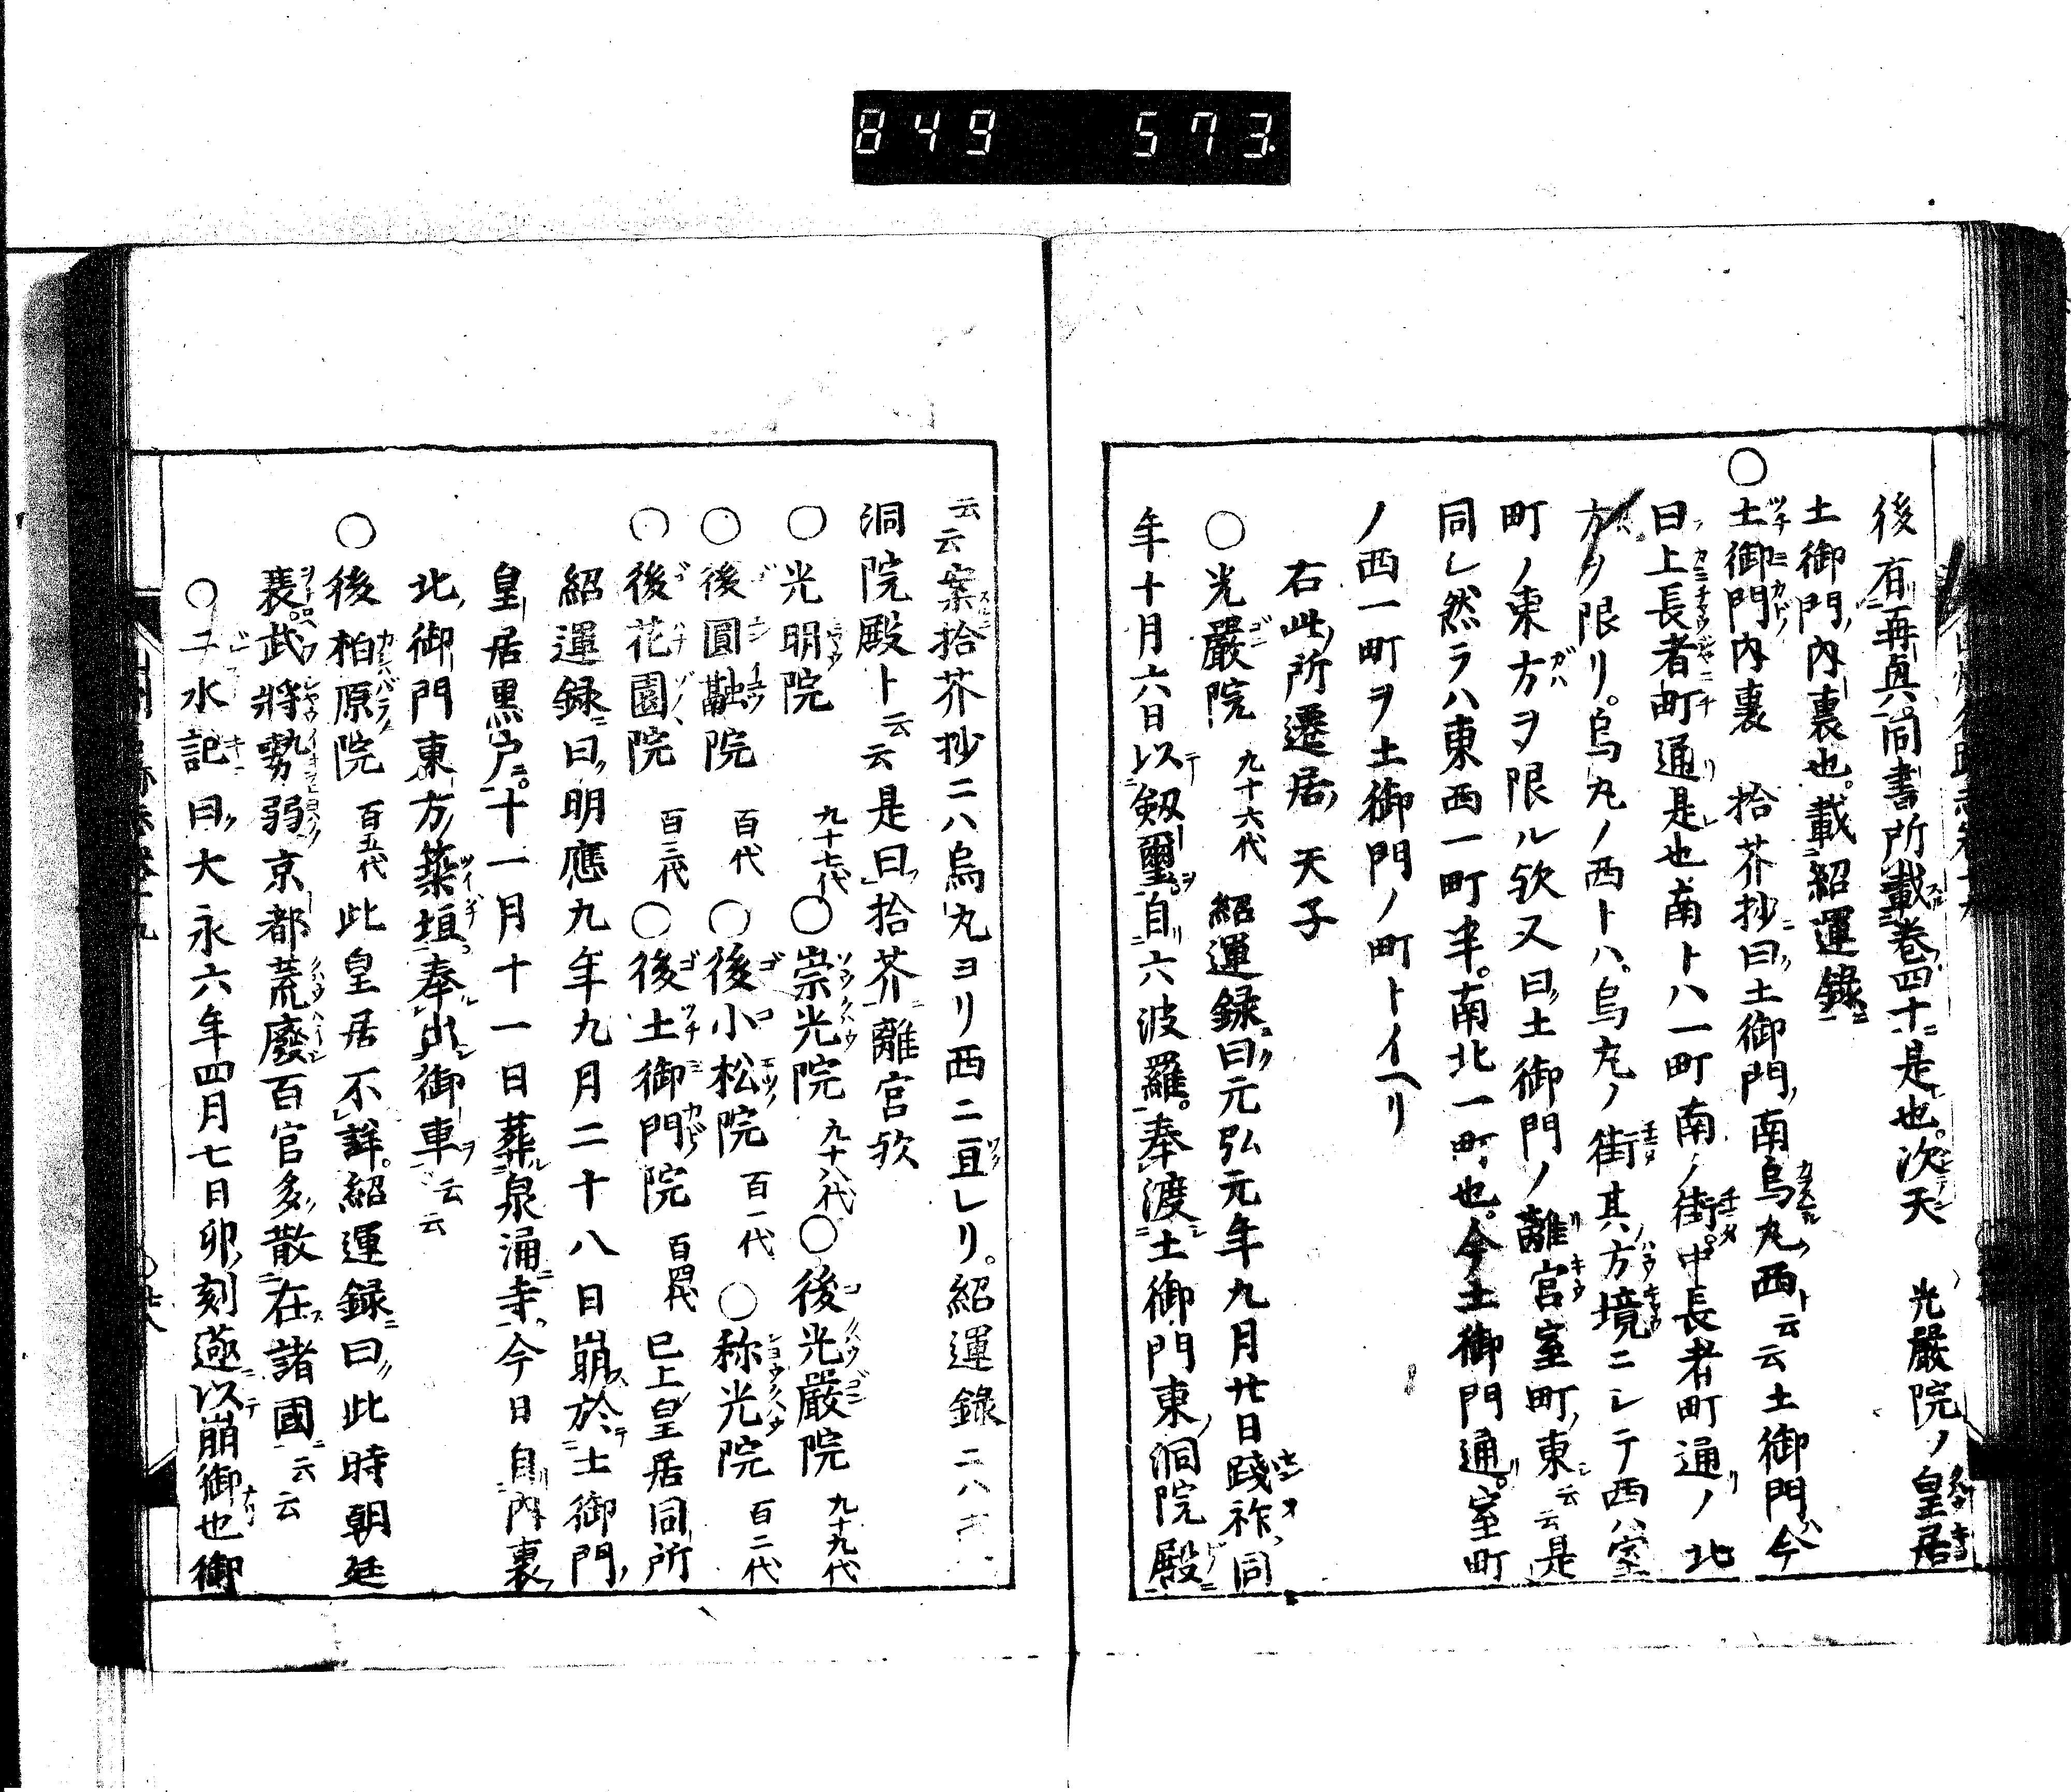 849 573.
後有再奥同書所載巻四十是也。次天 光嚴院ノ皇居
土御門内裏也。載紹運錄
○土御門内裏 拾芥抄曰土御門南烏丸西ト云云土御門今
曰上長者町通是也南トハ一町南ノ街中長者町通ノ北
方ヲ限リ。烏丸ノ西トハ烏丸ノ街其方境ニシテ西ハ室
町ノ東方ヲ限ル欤又曰土御門ノ離宮室町東云云是
同シ然ラハ東西一町半。南北一町也。今土御門通。室町
ノ西一町ヲ土御門ノ町トイヘリ
右此所遷居天子
○光嚴院 九十六代 紹運録曰元弘元年九月廿日踐祚同
年十月六日以剱璽自六波羅奉渡土御門東洞院殿
云云案拾芥抄ニハ烏丸ヨリ西ニ亘レリ。紹運錄ニハ
洞院殿ト云云是曰拾芥離宮欤
○光明院 九十七代 ○崇光院 九十八代 ○後光嚴院 九十九代
○後圓融院 百代 ○後小松院 百一代 ○称光院 百二代
○後花園院 百三代 ○後土御門院 百四代 已上皇居同所
紹運録曰明應九年九月二十八日崩於土御門
皇居黒戸。十一月十一日葬泉涌寺今日自内裏
北御門東方築垣奉出御車云云
○後柏原院 百五代 此皇居不詳。紹運録曰此時朝廷
衰武將勢弱京都荒廢百官多散在諸國云云
○二水記曰大永六年四月七日卯刻 以崩御也御